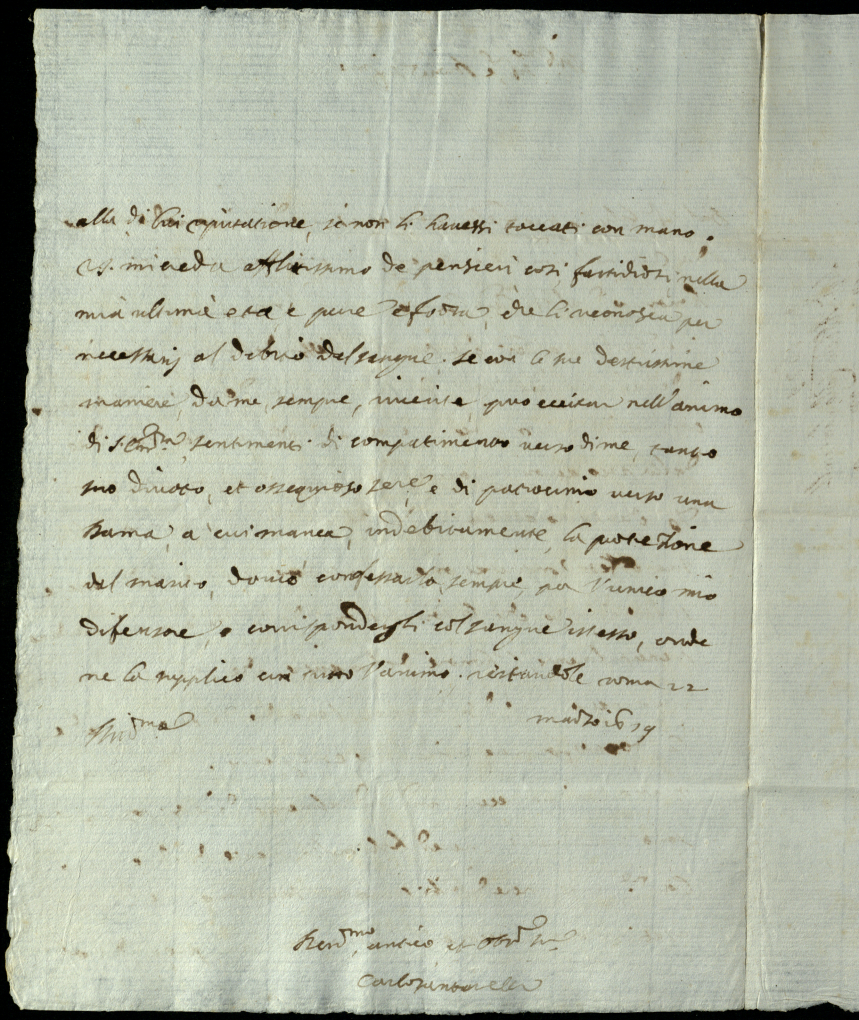 alla di lei riputatione, se non li havessi toccati con mano.
V.S. mi creda afflitissimo de pensieri così fastidiosi nella
mia ultima età, e pure è forza, che li riconosca per
necessarij al debito del sangue. se con le sue destrissime
maniere, da me, sempre, riverite, può eccitar nell'animo
di S. Em.ª sentimenti di compatimento verso di me, tanto
suo divoto, et ossequioso ser.re e di patrocinio verso una
Dama, a cui manca, indebitamente, la protezione
del marito, dovrò confessarla, sempre, per l'unico mio
difensore, e corrispondergli col sangue istesso, onde
ne la supplico con tutto l'animo. restandole roma 22
marzo 1679
Dev.mo antico et Obb.mo